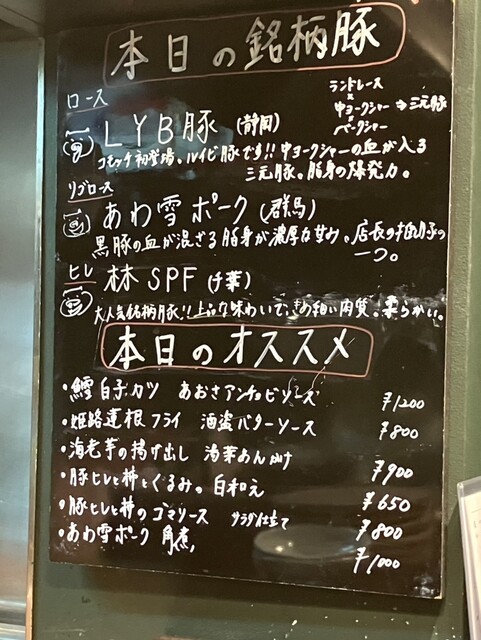 本日の銘柄豚
ロース
ランドレース
×
中ヨークシャー ⇒ 三元豚
×
バークシャー
LYB豚 (静岡)
初登場。ルイビ豚です!! 中ヨークシャーの血が入る
三元豚。脂身の爆発力。
リブロース
あわ雪ポーク (群馬)
黒豚の血が混ざる脂身が濃厚な甘み。店長の推し豚の
一つ。
ヒレ
林SPF (千葉)
大人気銘柄豚!! 上品な味わいで、きめ細い肉質。柔らかい。
本日のオススメ
・鱈白子カツ あおさアンチョビソース ¥1200
・姫路蓮根フライ 酒盗バターソース ¥800
・海老芋の揚げ出し 湯葉あんかけ ¥900
・豚ヒレと柿とくるみの白和え ¥650
・豚ヒレと柿のゴマソース サラダ仕立て ¥800
・あわ雪ポーク 角煮 ¥1000